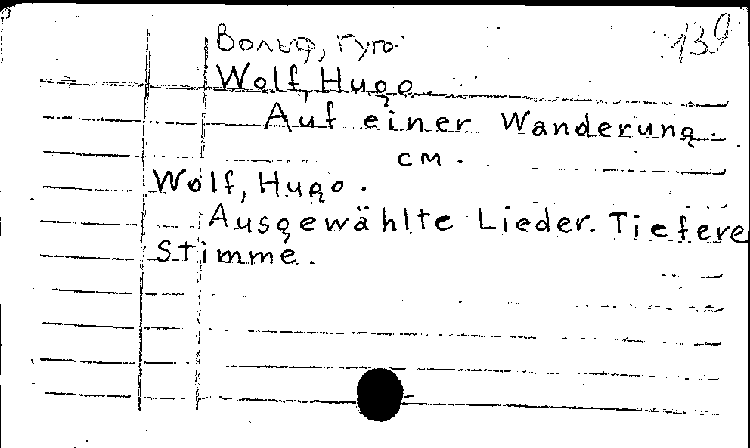 Вольф, Гуго. 139
Wolf, Hugo.
Auf einer Wanderung.
см.
Wolf, Hugo.
Ausgewählte Lieder. Tiefere
Stimme.